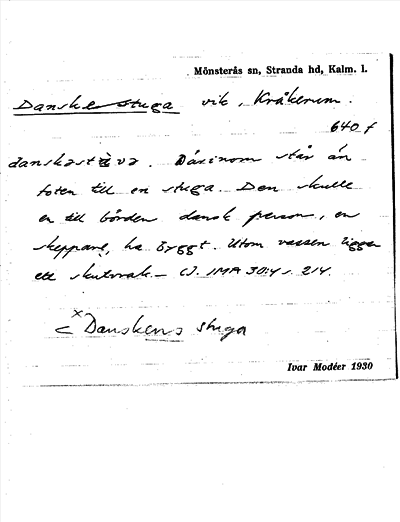 Mönsterås sn, Stranda hd, Kalm. l.
Danske stuga vik, Kråkerum.
640 f
danskast va. Därinom står än
foten till en stuga. Den skulle
en till börden dansk person, en
skeppare, ha byggt. Utom vassen ligger
ett skutvrak. – Cf. IMA 30:4 s. 214.
< x Danskens stuga
Ivar Modéer 1930